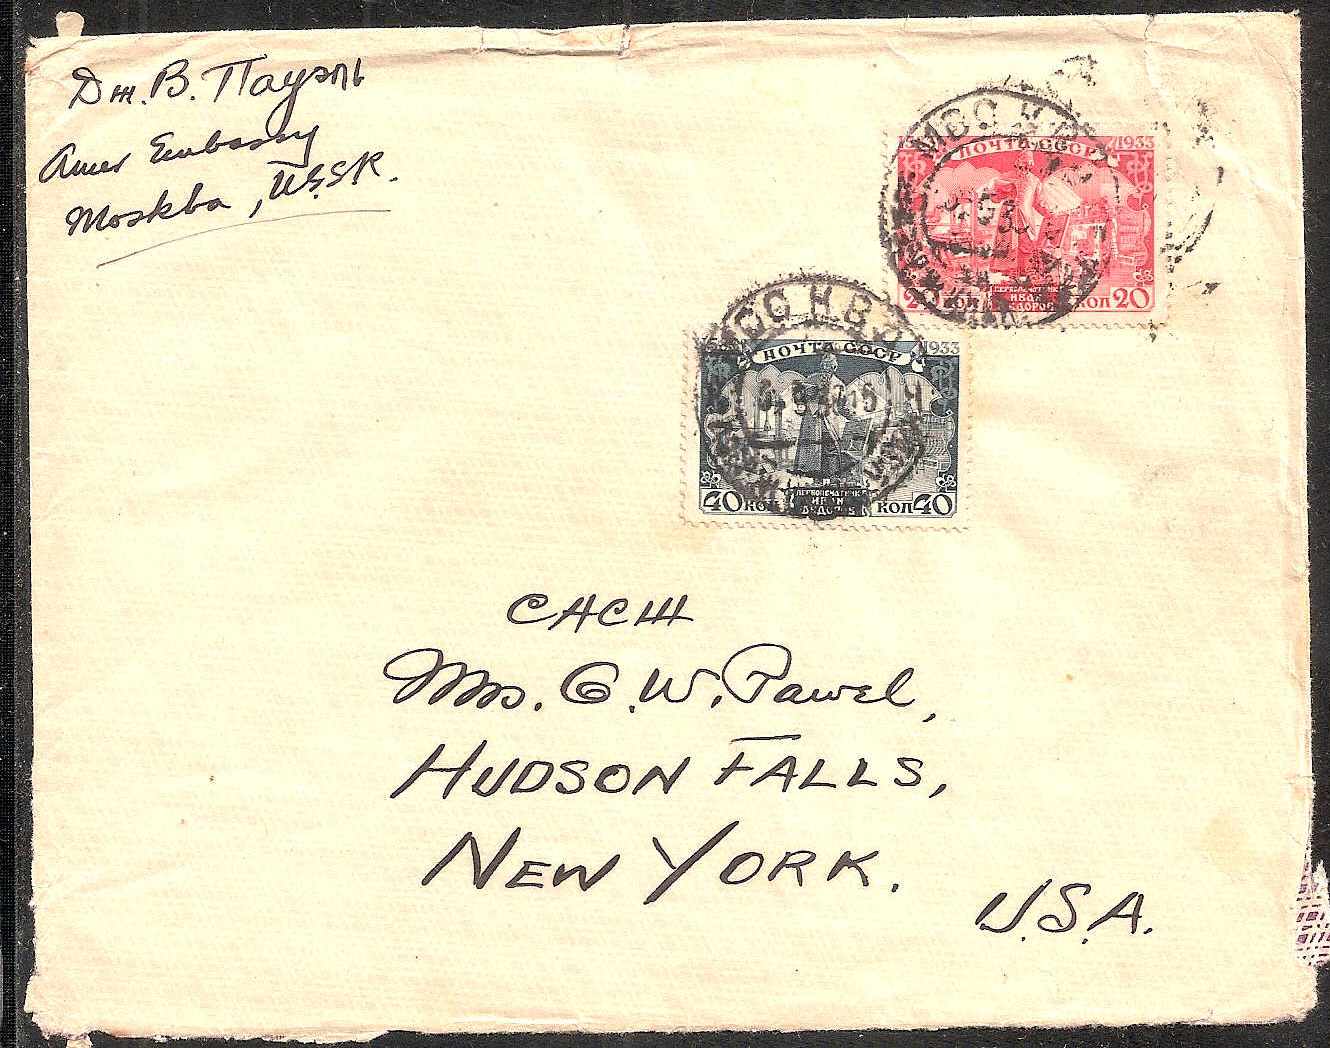 Дж. В. Пауэль
Amer Embassy
Moskba, USSR.
МОСКВА
ПОЧТА СССР 1933
КОП 20
ПЕРВОПЕЧАТНИК
ИВАН
ФЕДОРОВ
МОСКВА
ПОЧТА СССР 1933
40 КОП
ПЕРВОПЕЧАТНИК
ИВАН
ФЕДОРОВ
КОП 40
САСШ
Mrs. G. W. Pawel,
HUDSON FALLS,
NEW YORK.
U.S.A.